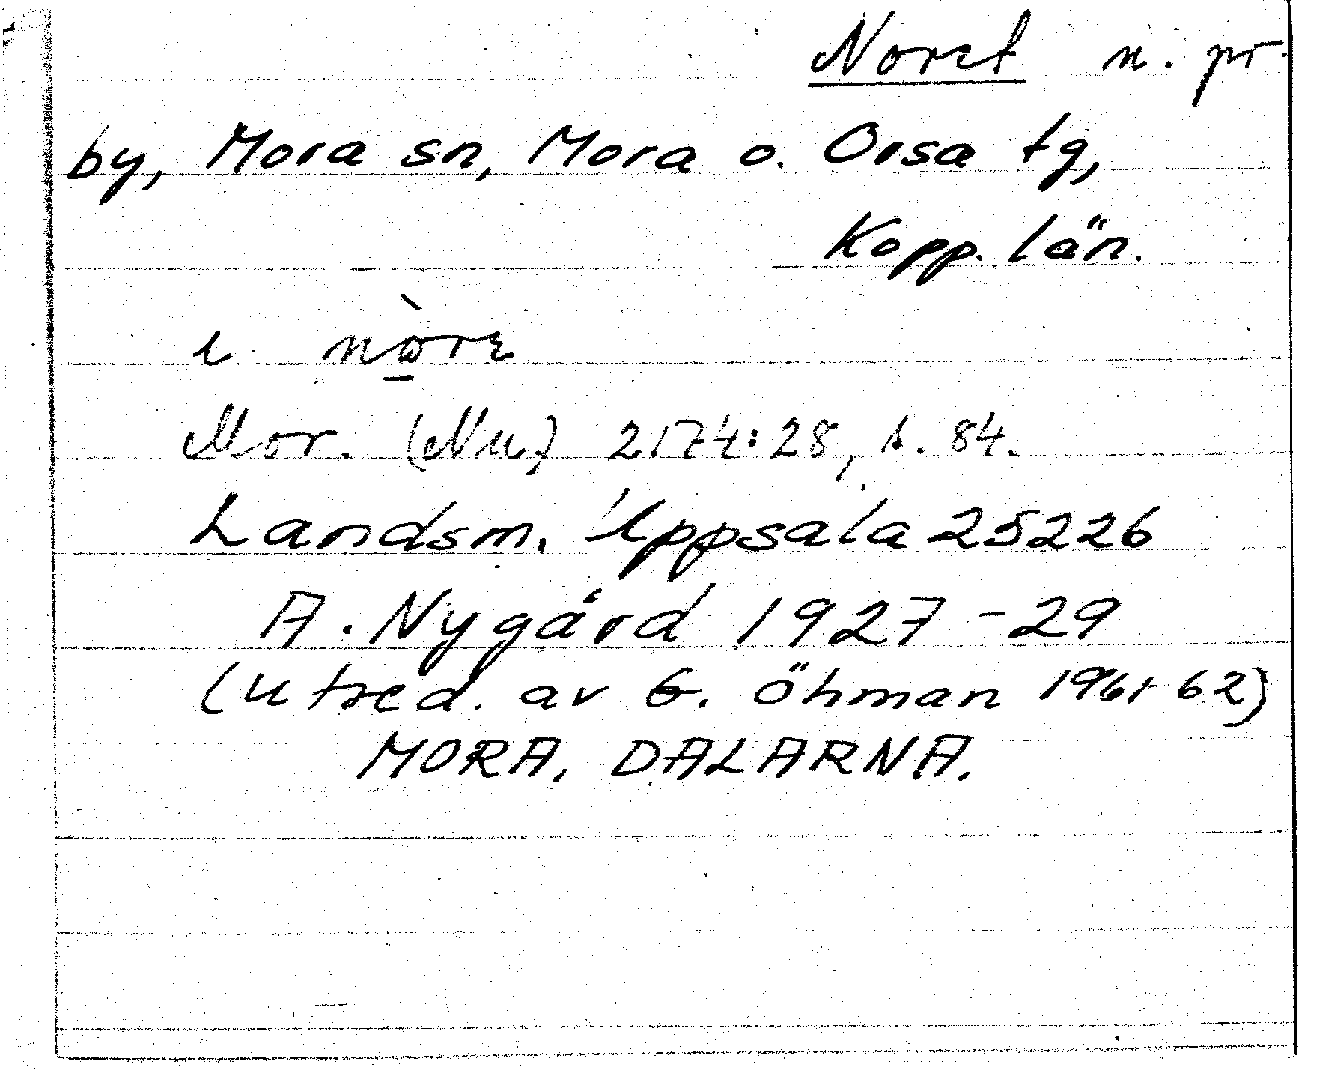 Noret n. pr.
by, Mora sn, Mora o. Orsa tg,
Kopp. län.
i nò̱re
Mor. (Nu) 2174:28, s. 84.
Landsm. Uppsala 25226
A. Nygård 1927-29
(utred. av G. Öhman 1961-62)
MORA, DALARNA.